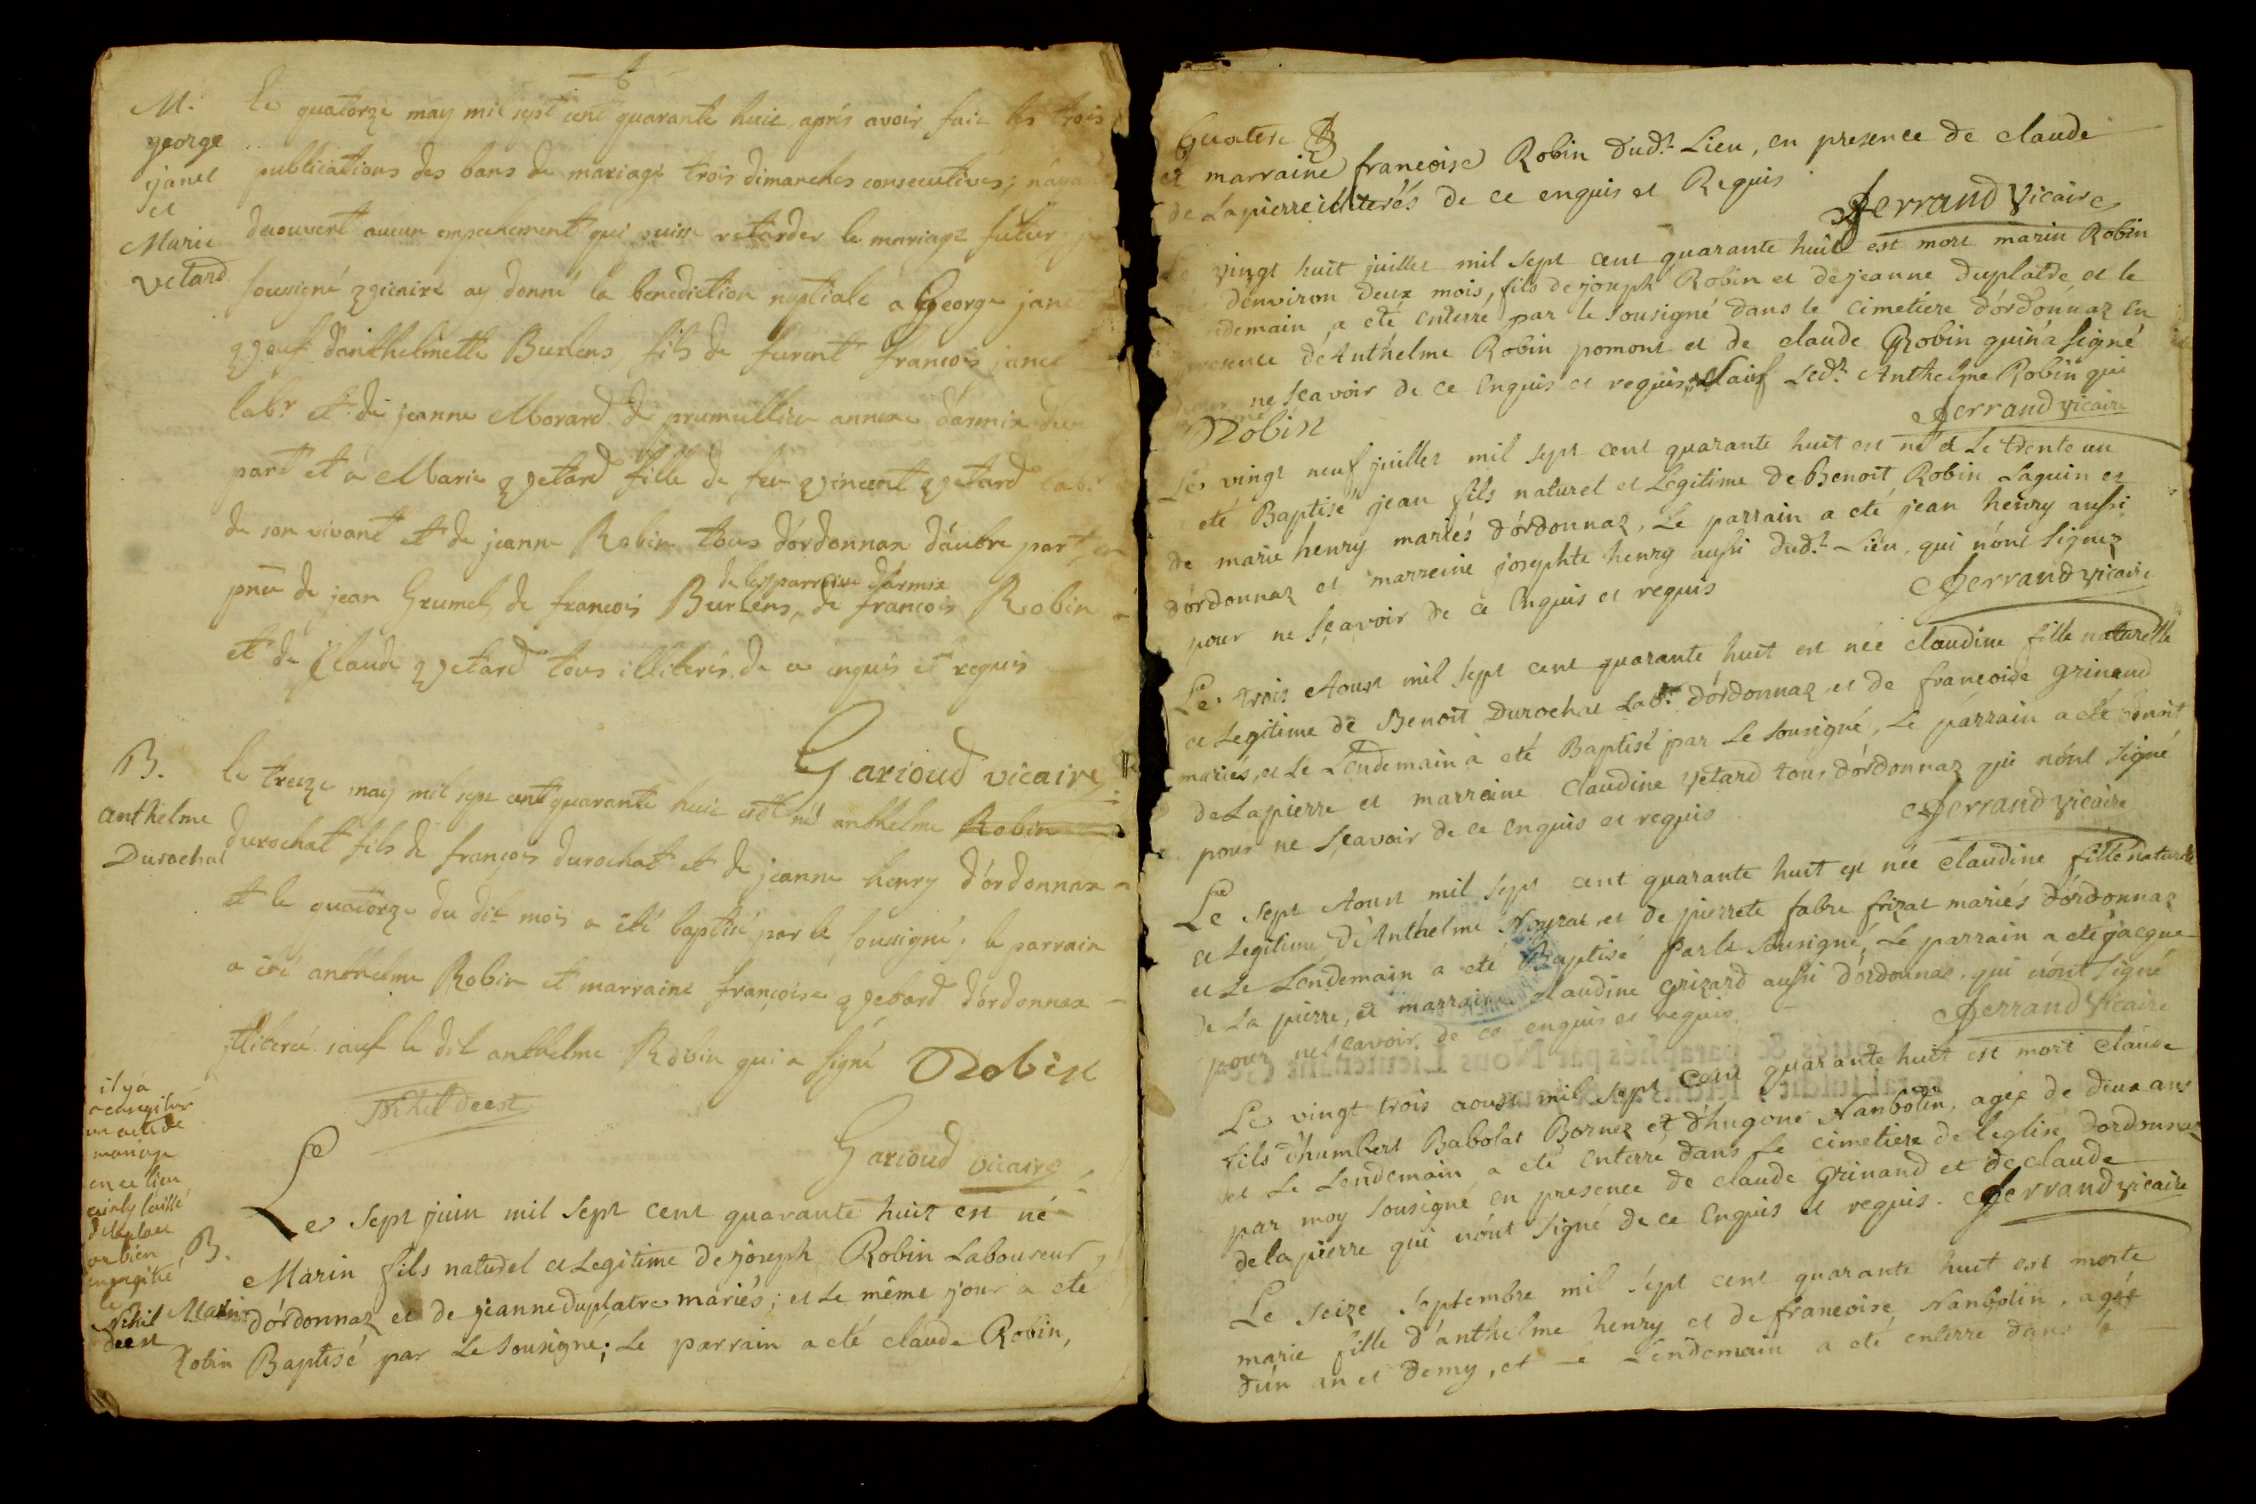 M.
george
janet
et
Marie
vetard
le quatorze may mil sept cent quarante huit, aprés avoir fait les trois
publications des bans de mariage trois dimanches consecutives; n'ayant
decouvert aucun empechement qui puisse retarder le mariage futur je
soussigné vicaire ay donné la benediction nuptiale a George janet
veuf d'anthelmette Burlens, fils de furent francois janet
labr et de jeanne Morard de prumullieu annexe d'armix d'une
part et a Marie vetard fille de feu vincent vetard labr
de son vivant et de jeanne Robin tous d'ordonnax d'autre part, en
de la parroisse d'armix
pnce de jean Grumel, de francois Burlens, de francois Robin
et de Claude vetard tous illiterés de ce enquis et requis
Garioud vicaire
B.
anthelme
Durochat
le treize may mil sept cent quarante huit est né anthelme Robin
durochat fils de françois durochat et de jeanne henry d'ordonnax
et le quatorze du dit mois a été baptisé par le soussigné; le parrain
a été anthelme Robin et marraine françoise vetard d'ordonnax
illiteré sauf le dit anthelme Robin qui a signé Robin
Nihil deest
Garioud vicaire
il y a
a enregitrer
un acte de
mariage
en ce lieu
laissé
ou bien
enregitré
le
Nihil
deest
B.
Marin
Robin
Le sept juin mil sept cent quarante huit est né
Marin fils naturel et Legitime de joseph Robin Laboureur,
d'órdonnaz et de jeanne duplatre mariés; et Le même jour a eté
Baptisé par Le Sousigne; Le parrain a eté claude Robin,
Quatre
et marraine francoise Robin dudt. Lieu, en presence de claude
de Lapierre illiterés de ce enquis et Requis
ferrand vicaire
Le vingt huit juillet mil sept cent quarante huit est mort marin Robin
d'environ deux mois, fils de joseph Robin et de jeanne duplatre, et le
lendemain a eté enterré par le Sousigné dans le cimetiere d'órdonnaz en
presence d'Anthelme Robin pomont et de claude Robin qui n'a signé
pour ne sçavoir de ce enquis et requis, sauf Ledt. Anthelme Robin qui
Robin
ferrand vicaire
Le vingt neuf juillet mil sept cent quarante huit est né et Le trente un
a eté Baptisé jean fils naturel et Legitime de Benoit Robin Laguin et
de marie henry mariés d'órdonnaz, Le parrain a eté jean henry aussi
d'órdonnaz et marreine josephte henry aussi dudt. Lieu, qui n'ónt signez
pour ne sçavoir de ce enquis et requis
ferrand vicaire
Le trois Aoust mil sept cent quarante huit est née claudine fille naturelle
et Legitime de Benoit Durochat Labr. d'órdonnaz et de francoise grinand
mariés, et Le Lendemain à eté Baptisé par Le Sousigné, Le parrain a eté benoit
de Lapierre et marreine Claudine vetard tous d'órdonnaz qui n'ónt signé
pour ne sçavoir de ce enquis et requis
ferrand vicaire
Le sept Aoust mil sept cent quarante huit est née Claudine fille naturele
et Legitime d'Anthelme Noyrat et de pierrete fabre frizat mariés d'órdonnaz
et Le Lendemain a eté Baptisé par le sousigné, Le parrain a eté jacque
de La pierre, et marraine claudine grizard aussi d'órdonnaz qui n'ónt signé
pour ne sçavoir de ce enquis et requis.
ferrand vicaire
Le vingt trois aoust mil sept cent quarante huit est mort claude
fils d'humbert Babolat Bornez et d'hugone Nanbotin, agée de deux ans
et Le Lendemain a eté enterré dans Le cimetiere de l'eglise d'ordonnaz
par moy sousigné en presence de claude grinand et de claude
de la pierre qui n'ónt signé de ce enquis et requis. ferrand vicaire
Le seize septembre mil sept cent quarante huit est morte
marie fille d'anthelme henry et de francoise Nanbotin, agée
d'ún an et demy, et Le Lendemain a eté enterré dans le